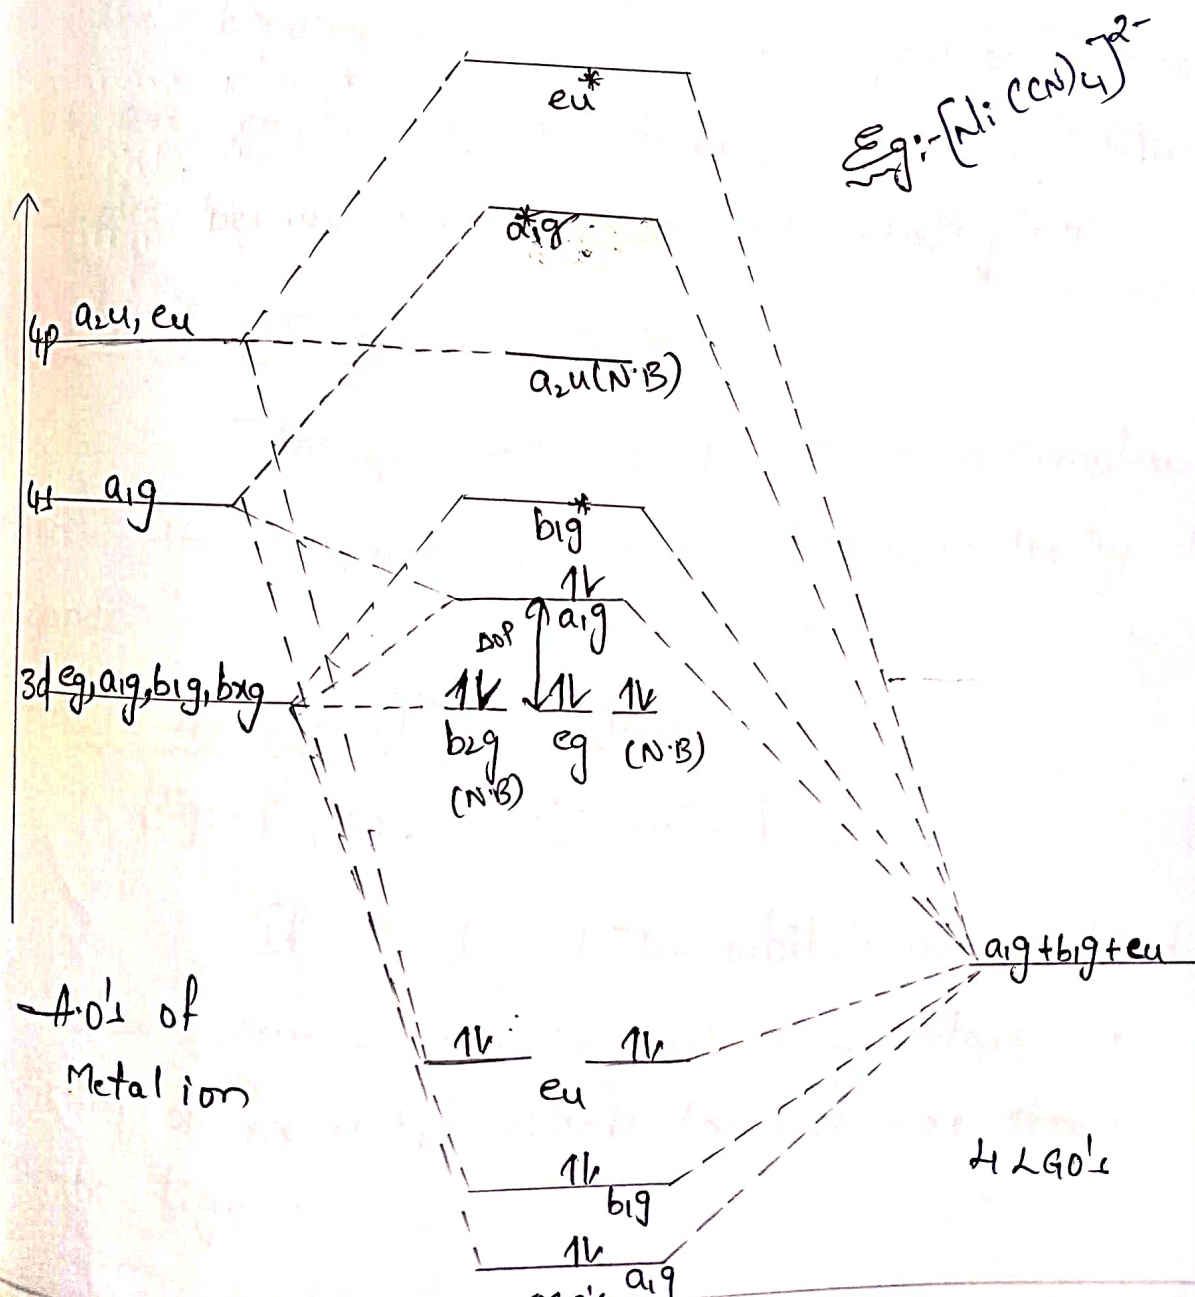 Eg:-[Ni(CN)4]2-
eu*
a1g*
4p a2u, eu
a2u(N.B)
4s a1g
b1g*
1L
a1g
ΔOP
3d eg,a1g,b1g,bxg
1L 1L 1L
b2g eg (N.B)
(N.B)
a1g+b1g+eu
A.O's of
Metal ion
1L 1L
eu
4 LGO's
1L
b1g
1L
a1g